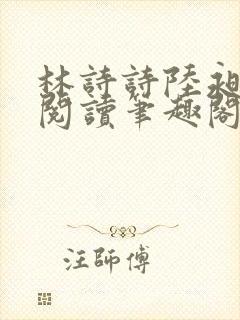 林詩詩陸昶
閱讀筆趣閣
汪師傅